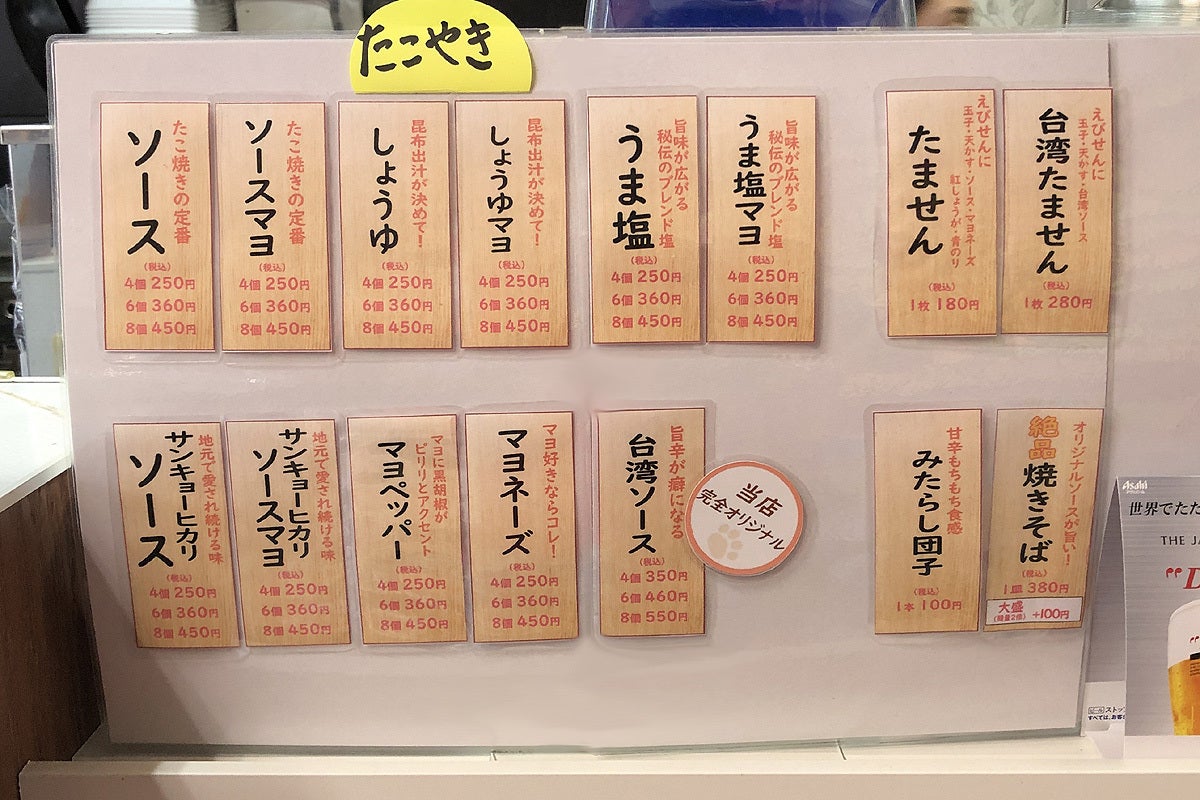 たこやき
たこ焼きの定番
ソース
(税込)
4個 250円
6個 360円
8個 450円
たこ焼きの定番
ソースマヨ
(税込)
4個 250円
6個 360円
8個 450円
昆布出汁が決めて!
しょうゆ
(税込)
4個 250円
6個 360円
8個 450円
昆布出汁が決めて!
しょうゆマヨ
(税込)
4個 250円
6個 360円
8個 450円
旨味が広がる
秘伝のブレンド塩
うま塩
(税込)
4個 250円
6個 360円
8個 450円
旨味が広がる
秘伝のブレンド塩
うま塩マヨ
(税込)
4個 250円
6個 360円
8個 450円
えびせんに
玉子・天かす・ソース・マヨネーズ
紅しょうが・青のり
たません
(税込)
1枚 180円
えびせんに
玉子・天かす・台湾ソース
台湾たません
(税込)
1枚 280円
地元で愛され続ける味
サンキョーヒカリ
ソース
(税込)
4個 250円
6個 360円
8個 450円
地元で愛され続ける味
サンキョーヒカリ
ソースマヨ
(税込)
4個 250円
6個 360円
8個 450円
マヨに黒胡椒が
ピリリとアクセント
マヨペッパー
(税込)
4個 250円
6個 360円
8個 450円
マヨ好きならコレ!
マヨネーズ
(税込)
4個 250円
6個 360円
8個 450円
旨辛が癖になる
台湾ソース
(税込)
4個 350円
6個 460円
8個 550円
当店
完全オリジナル
甘辛もちもち食感
みたらし団子
(税込)
1本 100円
オリジナルソースが旨い!
絶品焼きそば
(税込)
1皿 380円
大盛
(麺量2倍)
+100円
Asahi
世界でたた
THE JA
"D